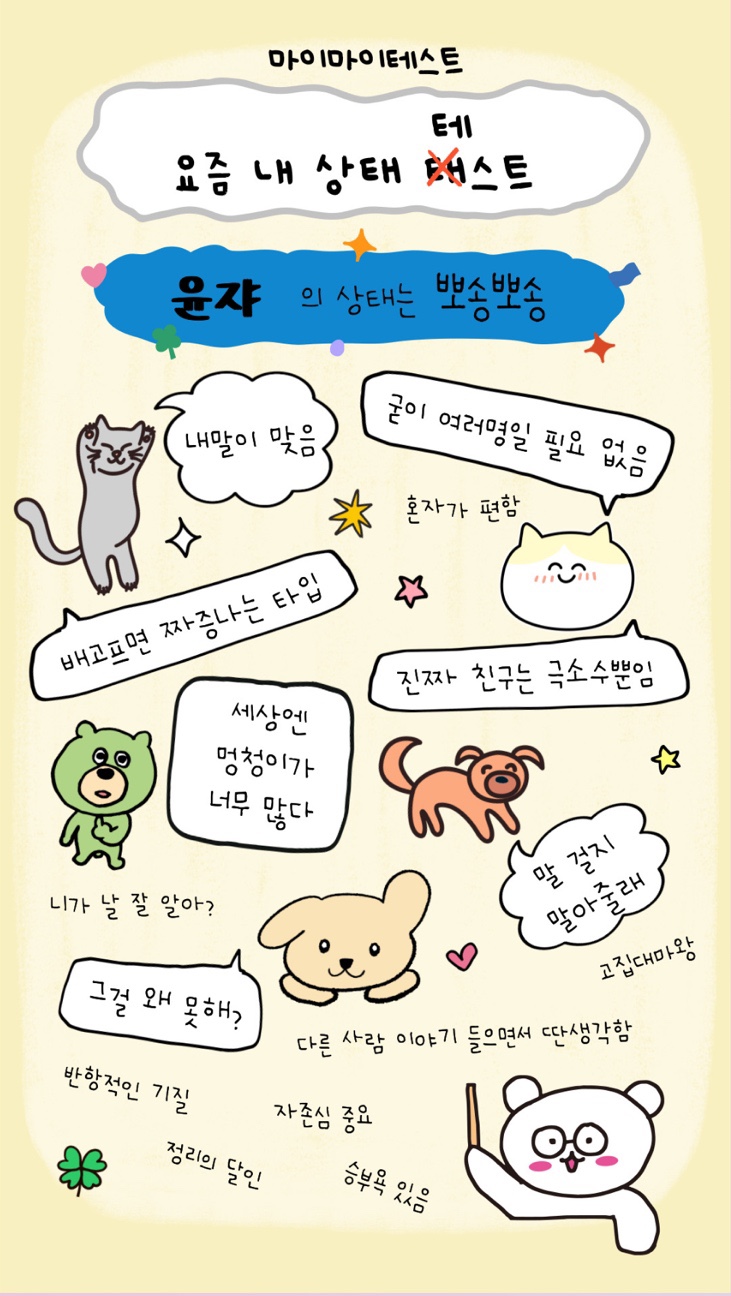 마이마이테스트
테
요즘 내 상태 태스트
윤쟈 의 상태는 뽀송뽀송
내말이 맞음
굳이 여러명일 필요 없음
혼자가 편함
배고프면 짜증나는 타입
진짜 친구는 극소수뿐임
세상엔
멍청이가
너무 많다
말 걸지
말아줄래
니가 날 잘 알아?
고집대마왕
그걸 왜 못해?
다른 사람 이야기 들으면서 딴생각함
반항적인 기질
자존심 중요
정리의 달인
승부욕 있음